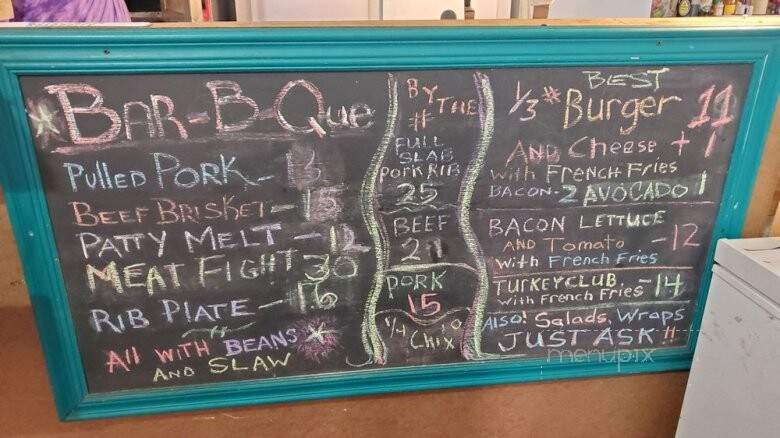 Bar-B-Que
Pulled Pork -
Beef Brisket - 15
Patty Melt - 12
Meat Fight 30
Rib Plate - 16
All with Beans
and Slaw
By the
#
Full
Slab
Pork Rib
25
Beef
21
Pork
15
1/4 Chix 10
Best
1/3# Burger 11
and Cheese + 1
with French Fries
Bacon - 2 Avocado 1
Bacon Lettuce
and Tomato - 12
with French Fries
Turkey Club - 14
with French Fries
Also! Salads, Wraps
Just Ask !!
menupix